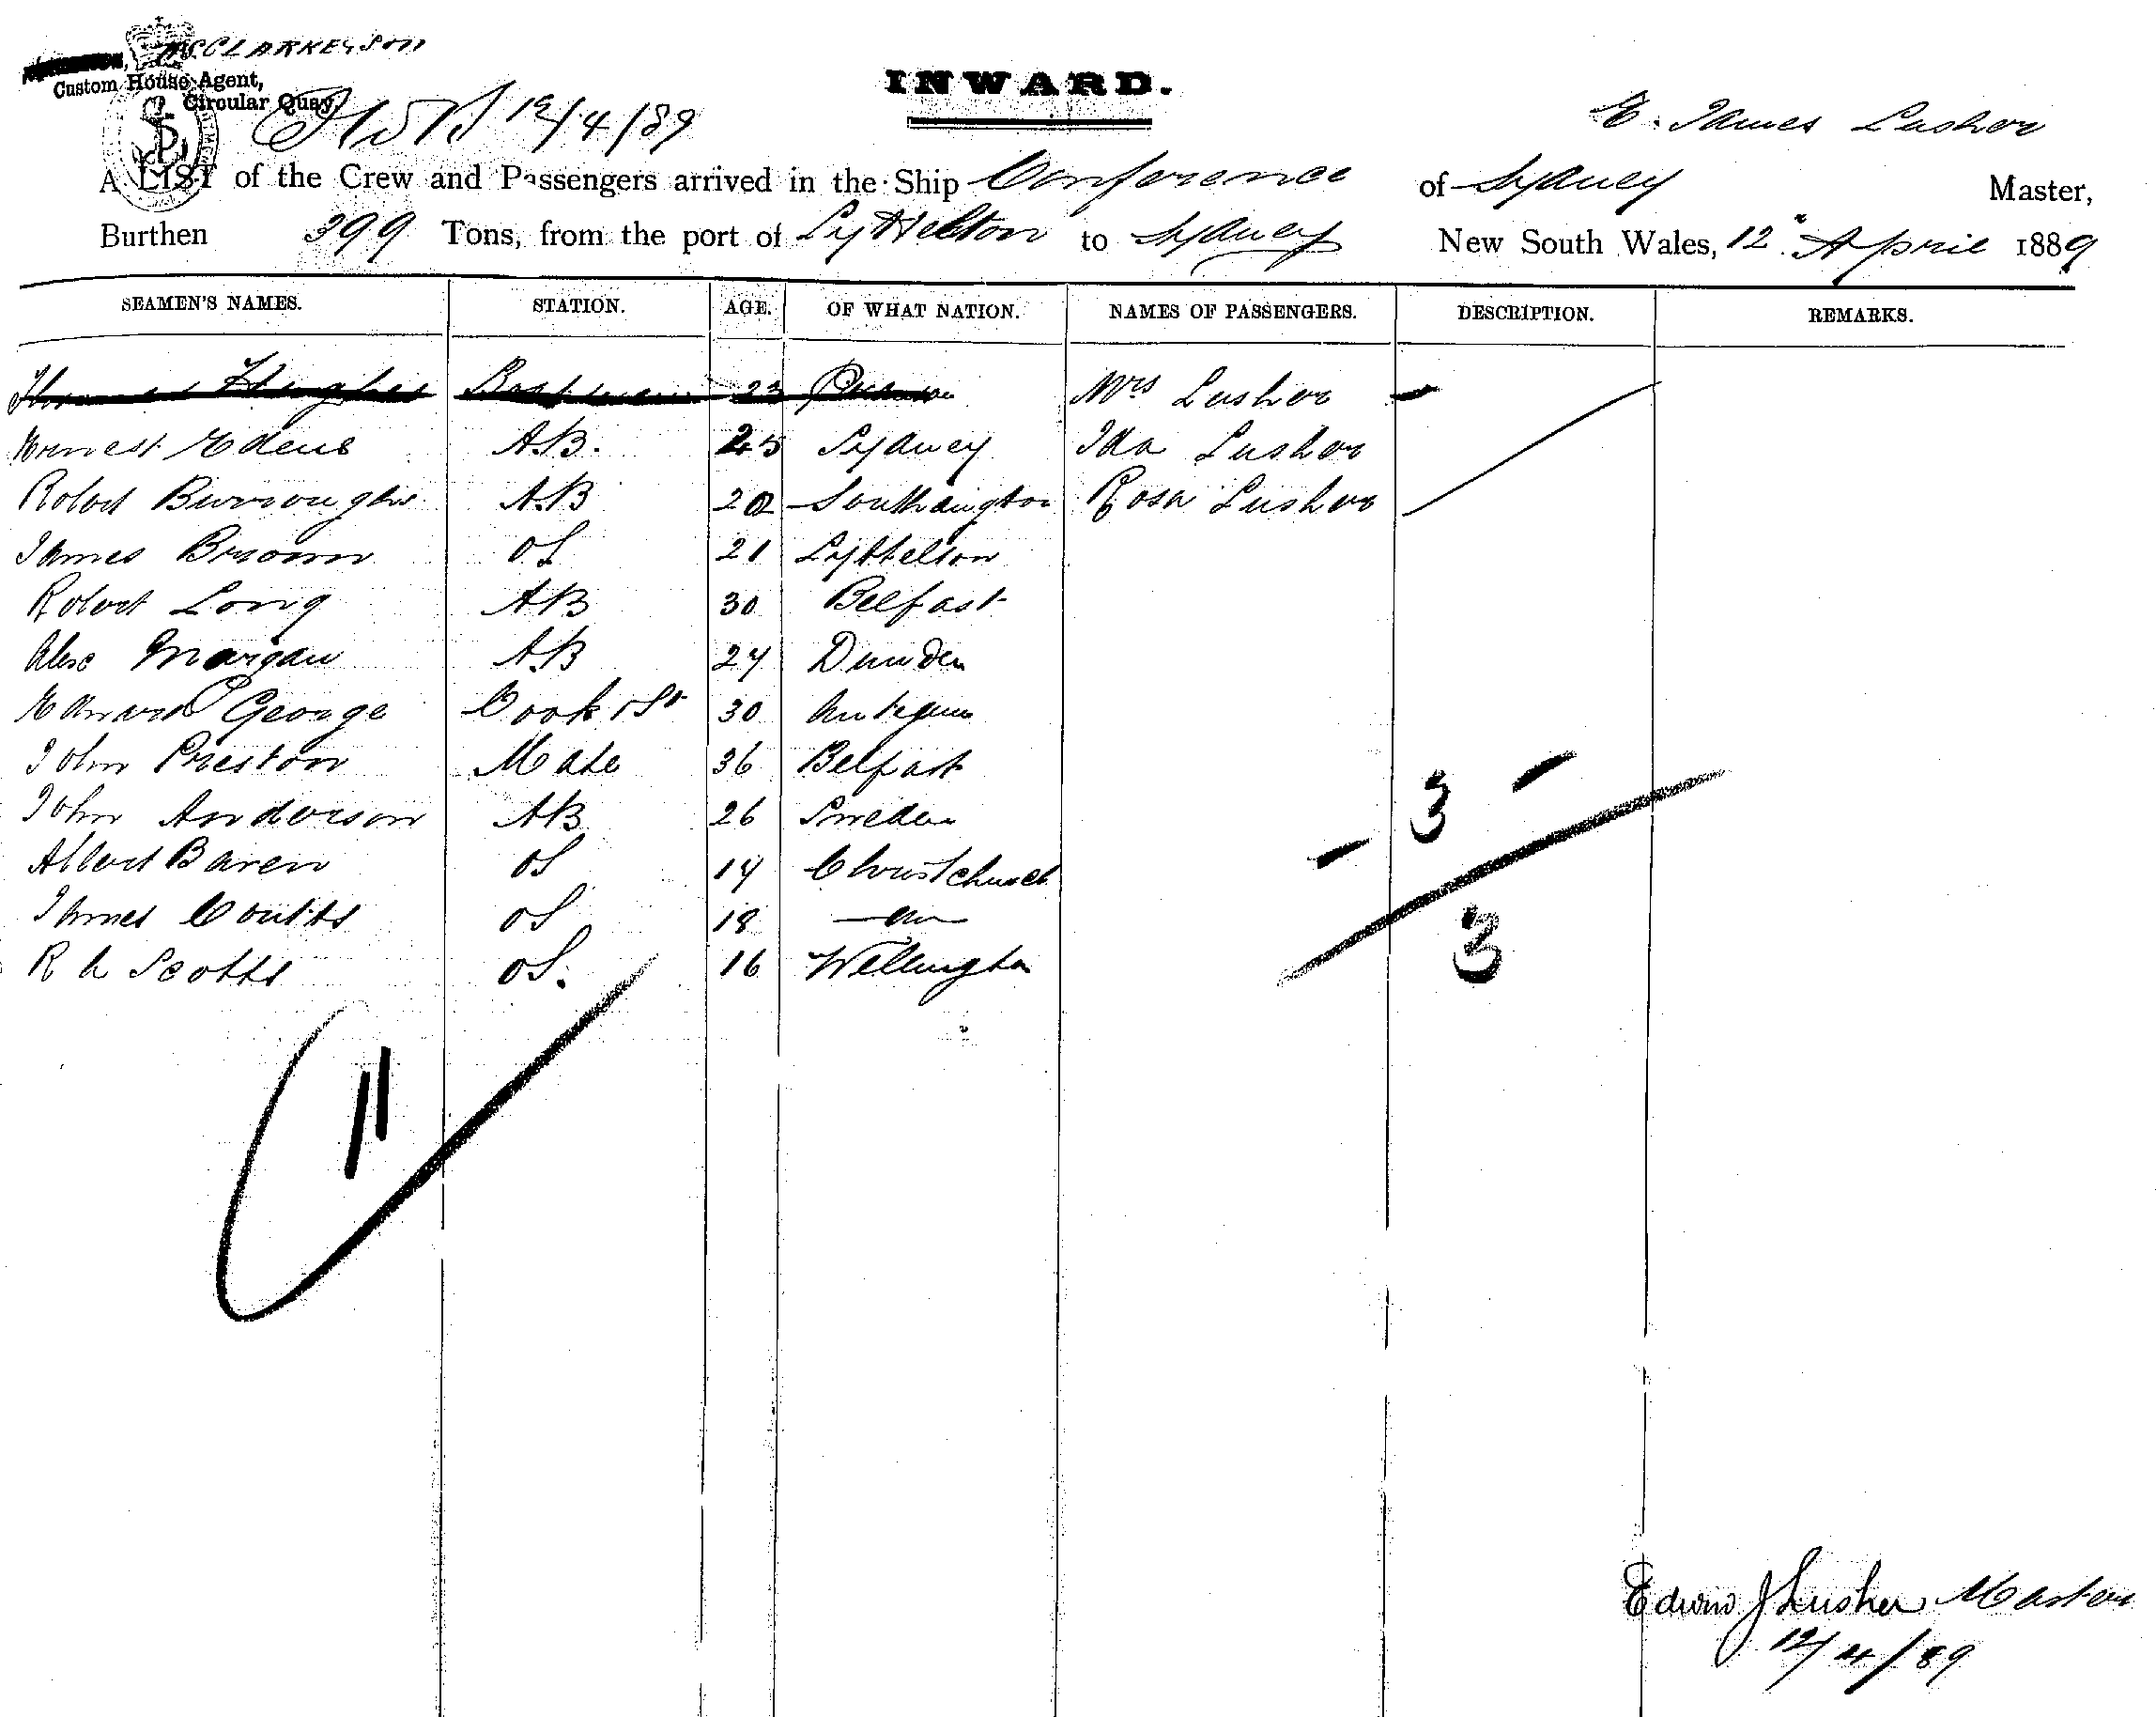 McCLARKESON
Custom House Agent,
Circular Quay,
12/4/89
INWARD.
E. James Lusher
A LIST of the Crew and Passengers arrived in the Ship Conference of Sydney Master,
Burthen 399 Tons, from the port of Lyttelton to Sydney New South Wales, 12 April 1889
SEAMEN'S NAMES. STATION. AGE. OF WHAT NATION. NAMES OF PASSENGERS. DESCRIPTION. REMARKS.
Thomas Hughes 23 Mrs Lusher
Ernest Edens A.B. 25 Sydney Ida Lusher
Robert Burroughs A.B 20 Southampton Rosa Lusher
James Brown OS 21 Lyttelton
Robert Long AB 30 Belfast
Alex Morgan A.B 24 Dundee
Edward George Cook & St 30 Antigua
John Preston Mate 36 Belfast
John Anderson AB 26 Sweden
Albert Baren OS 19 Christchurch
James Coutts OS 18
R A Scotts OS. 16 Wellington
- 3 -
3
11
Edwin J Lusher Master
12/4/89